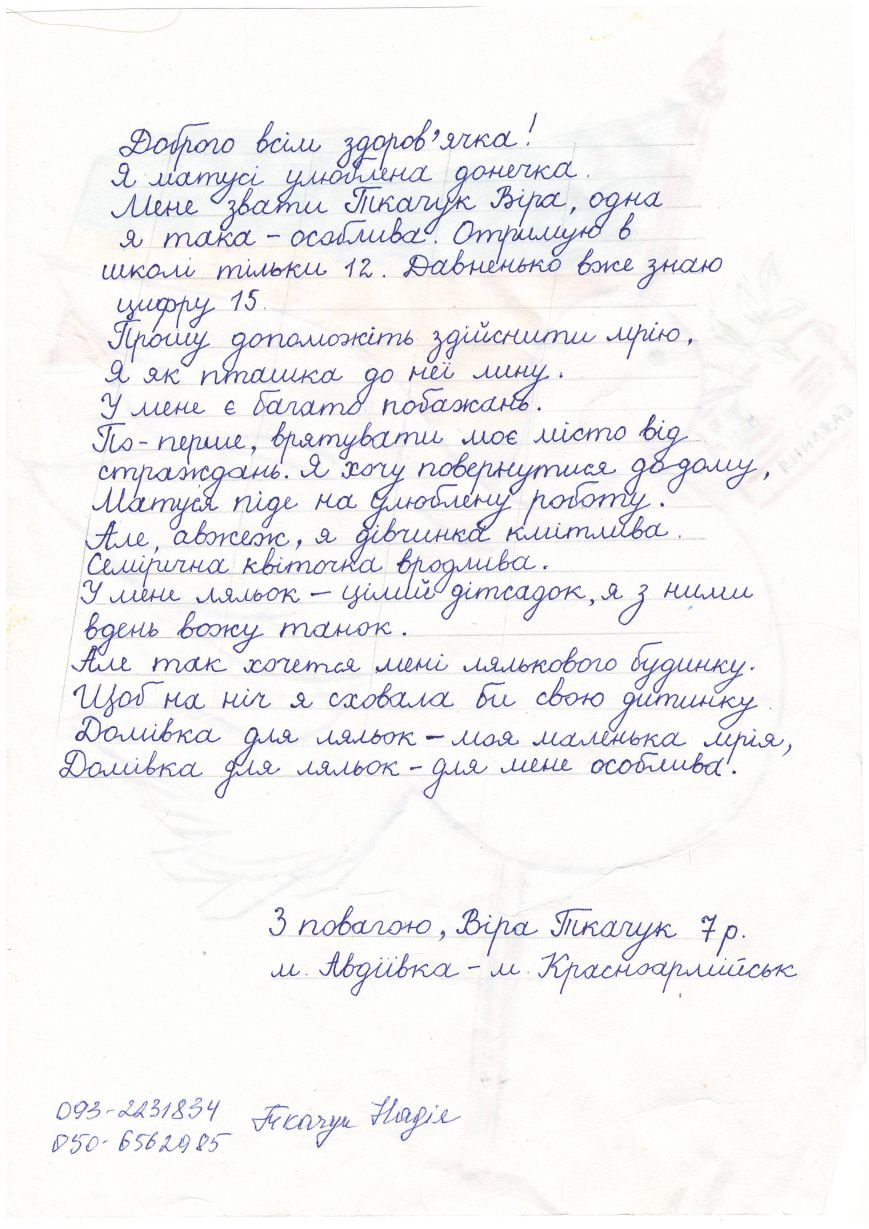 Доброго всім здоров'ячка!
Я матусі улюблена донечка.
Мене звати Ткачук Віра, одна
я така - особлива. Отримую в
школі тільки 12. Давненько вже знаю
цифру 15.
Прошу допоможіть здійснити мрію,
Я як пташка до неї лину.
У мене є багато побажань.
По-перше, врятувати моє місто від
страждань. Я хочу повернутися додому,
Матуся піде на улюблену роботу.
Але, авжеж, я дівчинка кмітлива.
Семірічна квіточка вродлива.
У мене ляльок - цілий дітсадок, я з ними
вдень вожу танок.
Але так хочется мені лялькового будинку.
Щоб на ніч я сховала би свою дитинку
Домівка для ляльок - моя маленька мрія,
Домівка для ляльок - для мене особлива.
З повагою, Віра Ткачук 7 р.
м. Авдіївка - м. Красноармійськ
093-2231834 Ткачук Надія
050-6562985